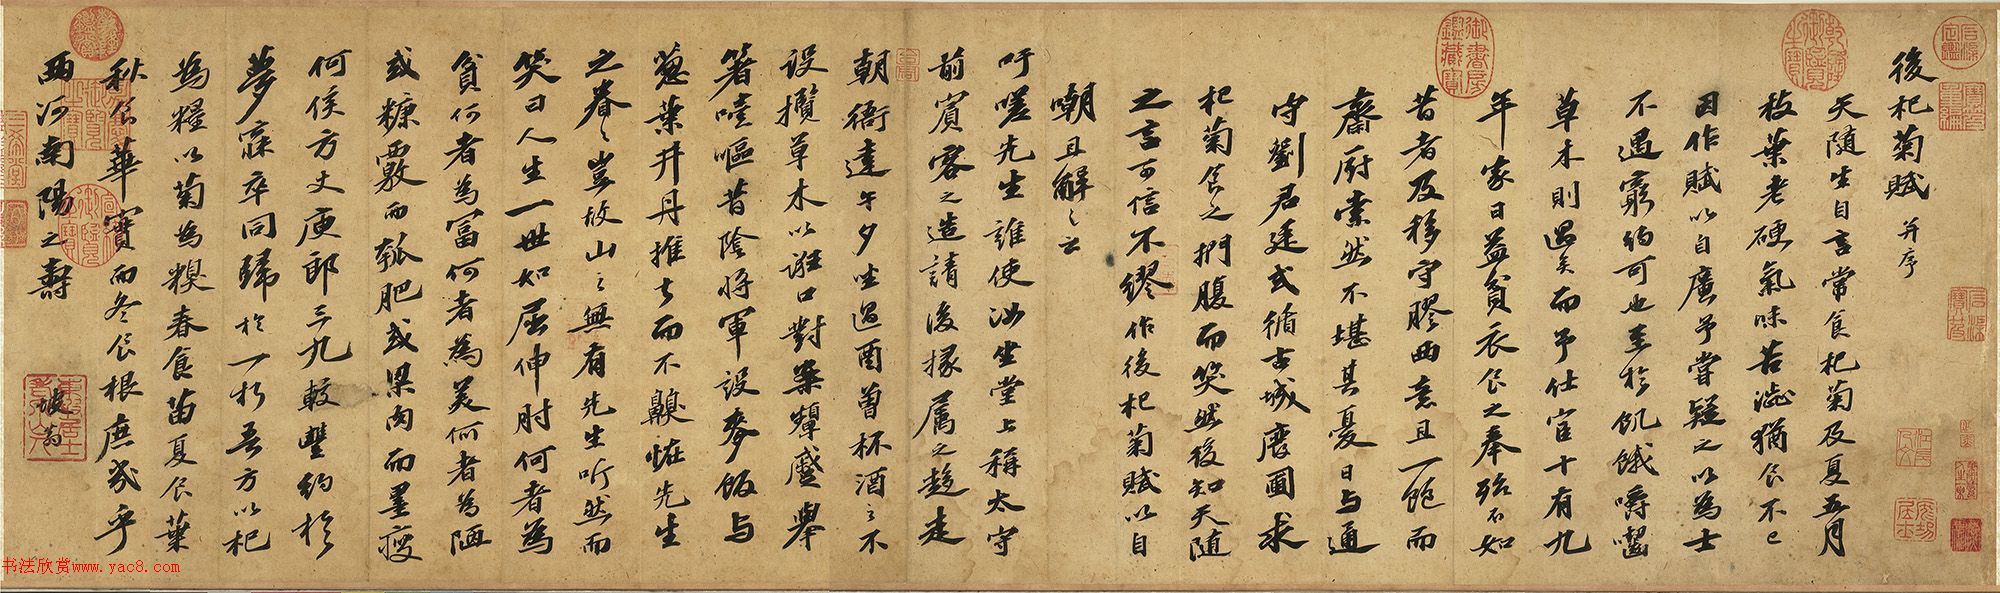 後杞菊賦 并序
天隨生自言常食杞菊及夏五月
枝葉老硬氣味苦澀猶食不已
因作賦以自廣予嘗疑之以為士
不遇窮約可也至於飢餓嚼齧
草木則過矣而予仕宦十有九
年家日益貧衣食之奉殆不如
昔者及移守膠西意且一飽而
齋廚索然不堪其憂日与通
守劉君廷式循古城廢圃求
杞菊食之捫腹而笑然後知天隨
之言可信不繆作後杞菊賦以自
嘲且解之云
吁嗟先生誰使汝坐堂上稱太守
前賓客之造請後掾属之趨走
朝衙達午夕坐過酉曽杯酒之不
设攬草木以誑口對案顰蹙舉
箸噎嘔昔陰將軍設麥飯与
葱葉井丹推去而不齅恠先生
之眷〻豈故山之無有先生听然而
笑曰人生一世如屈伸肘何者為
貧何者為富何者為美何者為陋
或糠覈而瓠肥或梁肉而墨瘦
何侯方丈庾郎三九較豐約於
夢寐卒同歸於一朽吾方以杞
為糧以菊為糗春食苗夏食葉
秋食華實而冬食根庶幾乎
西河南陽之壽
坡翁
书法欣赏www.yac8.com